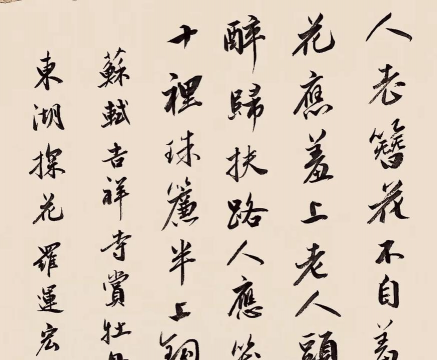 人老簪花不自羞
花應羞上老人頭
醉歸扶路人應笑
十裡珠簾半上
蘇軾吉祥寺賞牡丹
東湖探花羅運宏